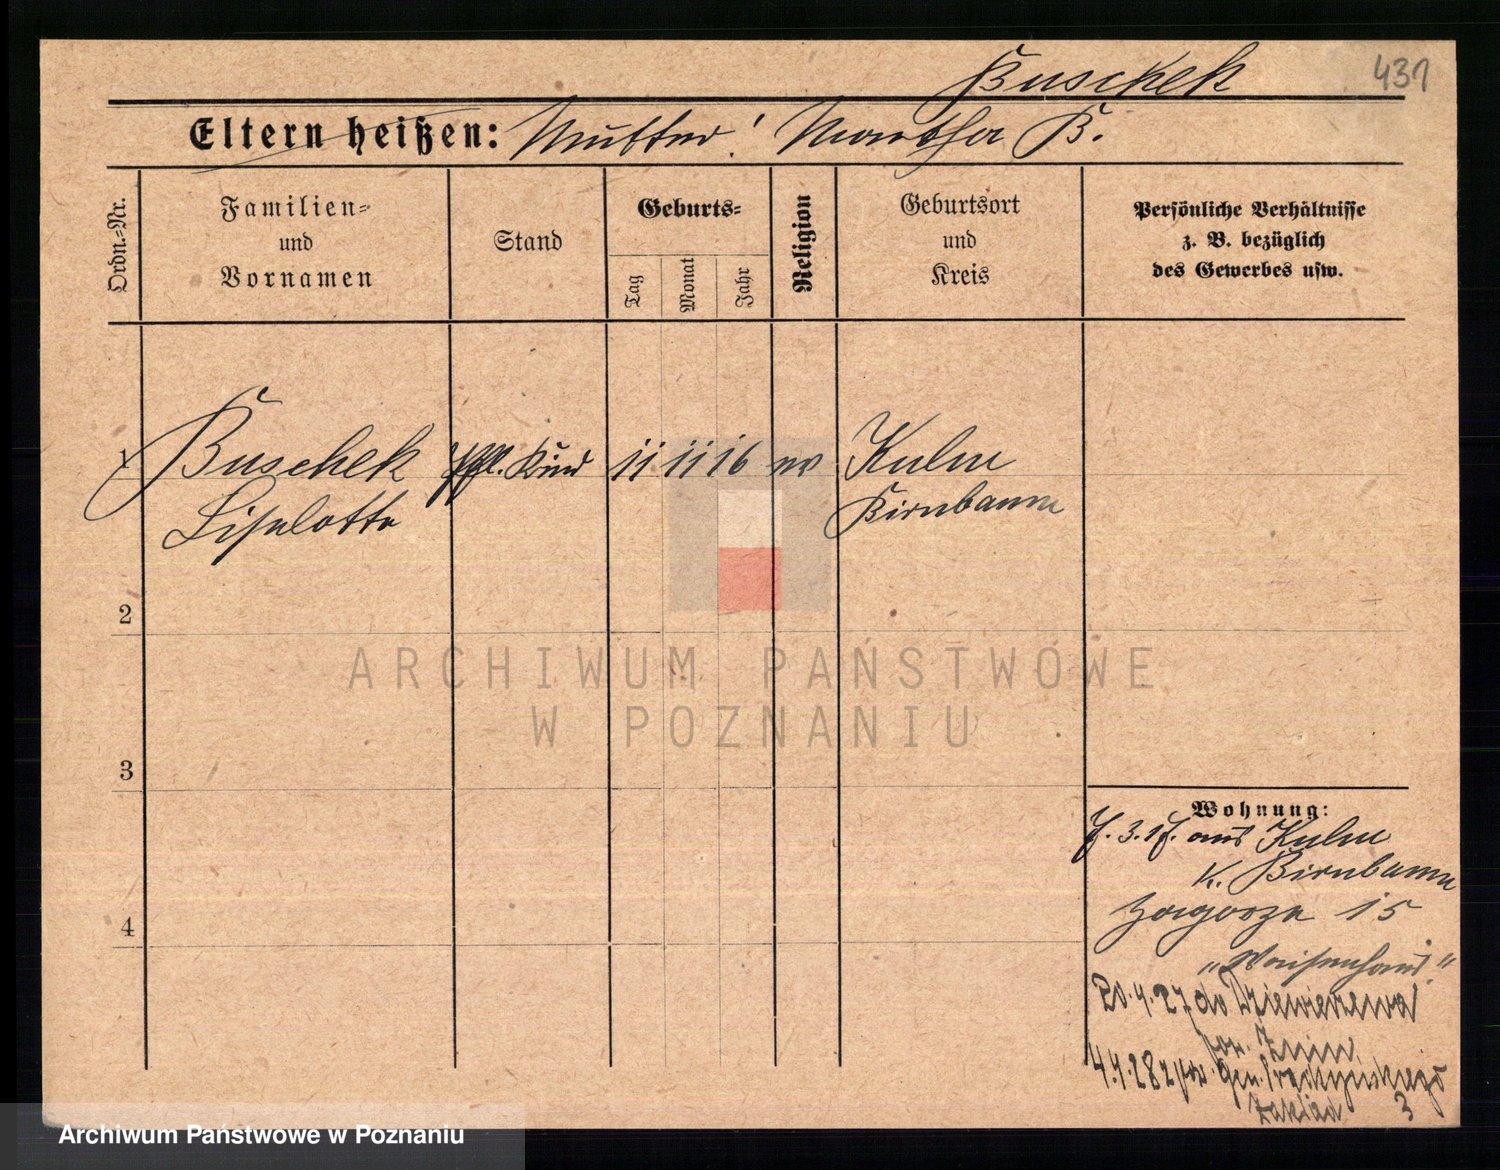 431
Buschek
Eltern heißen: Mutter! Martha B.
Ordn.-Nr.
Familien-
und
Vornamen
Stand
Geburts-
Tag
Monat
Jahr
Religion
Geburtsort
und
Kreis
Persönliche Verhältnisse
z. B. bezüglich
des Gewerbes usw.
1 Buschek pfl. Kind 11 11 16 ev Kulm
Liselotte Birnbaum
2
3
4
Wohnung:
3. 17. aus Kulm
K. Birnbaum
Zagorze 15
"Waisenhaus"
20.4.27 do Dziewierzewa
pow. Żnin
4.4.28 Gen. Prądzyńskiego
Zakład 3
ARCHIWUM PAŃSTWOWE
W POZNANIU
Archiwum Państwowe w Poznaniu